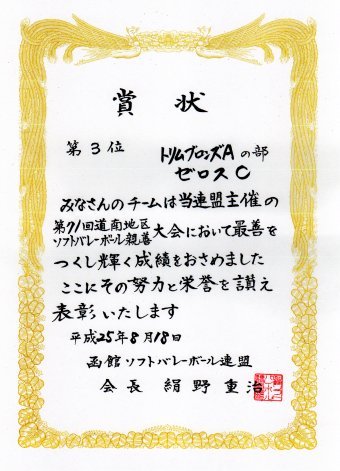 賞状
第3位 トリムブロンズAの部
ゼロスC
みなさんのチームは当連盟主催の
第71回道南地区
ソフトバレーボール親善
大会において最善を
つくし輝く成績をおさめました
ここにその努力と栄誉を讃え
表彰いたします
平成25年8月18日
函館ソフトバレーボール連盟
会長 絹野重治